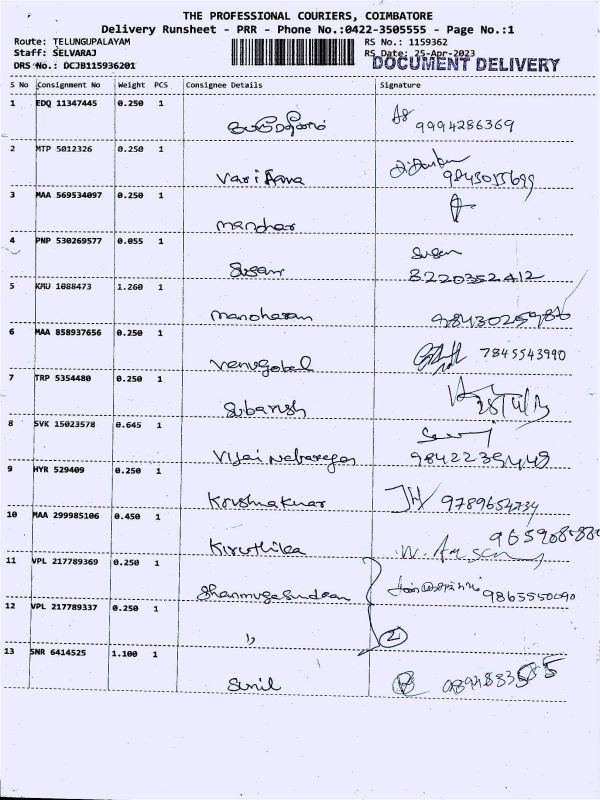 THE PROFESSIONAL COURIERS, COIMBATORE
Delivery Runsheet - PRR - Phone No.:0422-3505555 - Page No.:1
Route: TELUNGUPALAYAM RS No.: 1159362
Staff: SELVARAJ RS Date: 25-Apr-2023
DRS No.: DCJB115936201 DOCUMENT DELIVERY
S No Consignment No Weight PCS Consignee Details Signature
1 EDQ 11347445 0.250 1
9994286369
2 MTP 5012326 0.250 1
3 MAA 569534097 0.250 1
manohar
4 PNP 530269577 0.055 1 Susan
Susan 8220352412
5 KMU 1088473 1.260 1
manoharan
6 MAA 858937656 0.250 1
venugobal 7845543990
7 TRP 5354480 0.250 1
Subarish 28/4/23
8 SVK 15023578 0.645 1
Vijai
9 HYR 529409 0.250 1
Krishnakumar 9789654734
10 MAA 299985106 0.450 1
Kiruthika
11 VPL 217789369 0.250 1
Shanmugasundaram 9865550090
12 VPL 217789337 0.250 1
" 2
13 SNR 6414525 1.100 1
Sunil